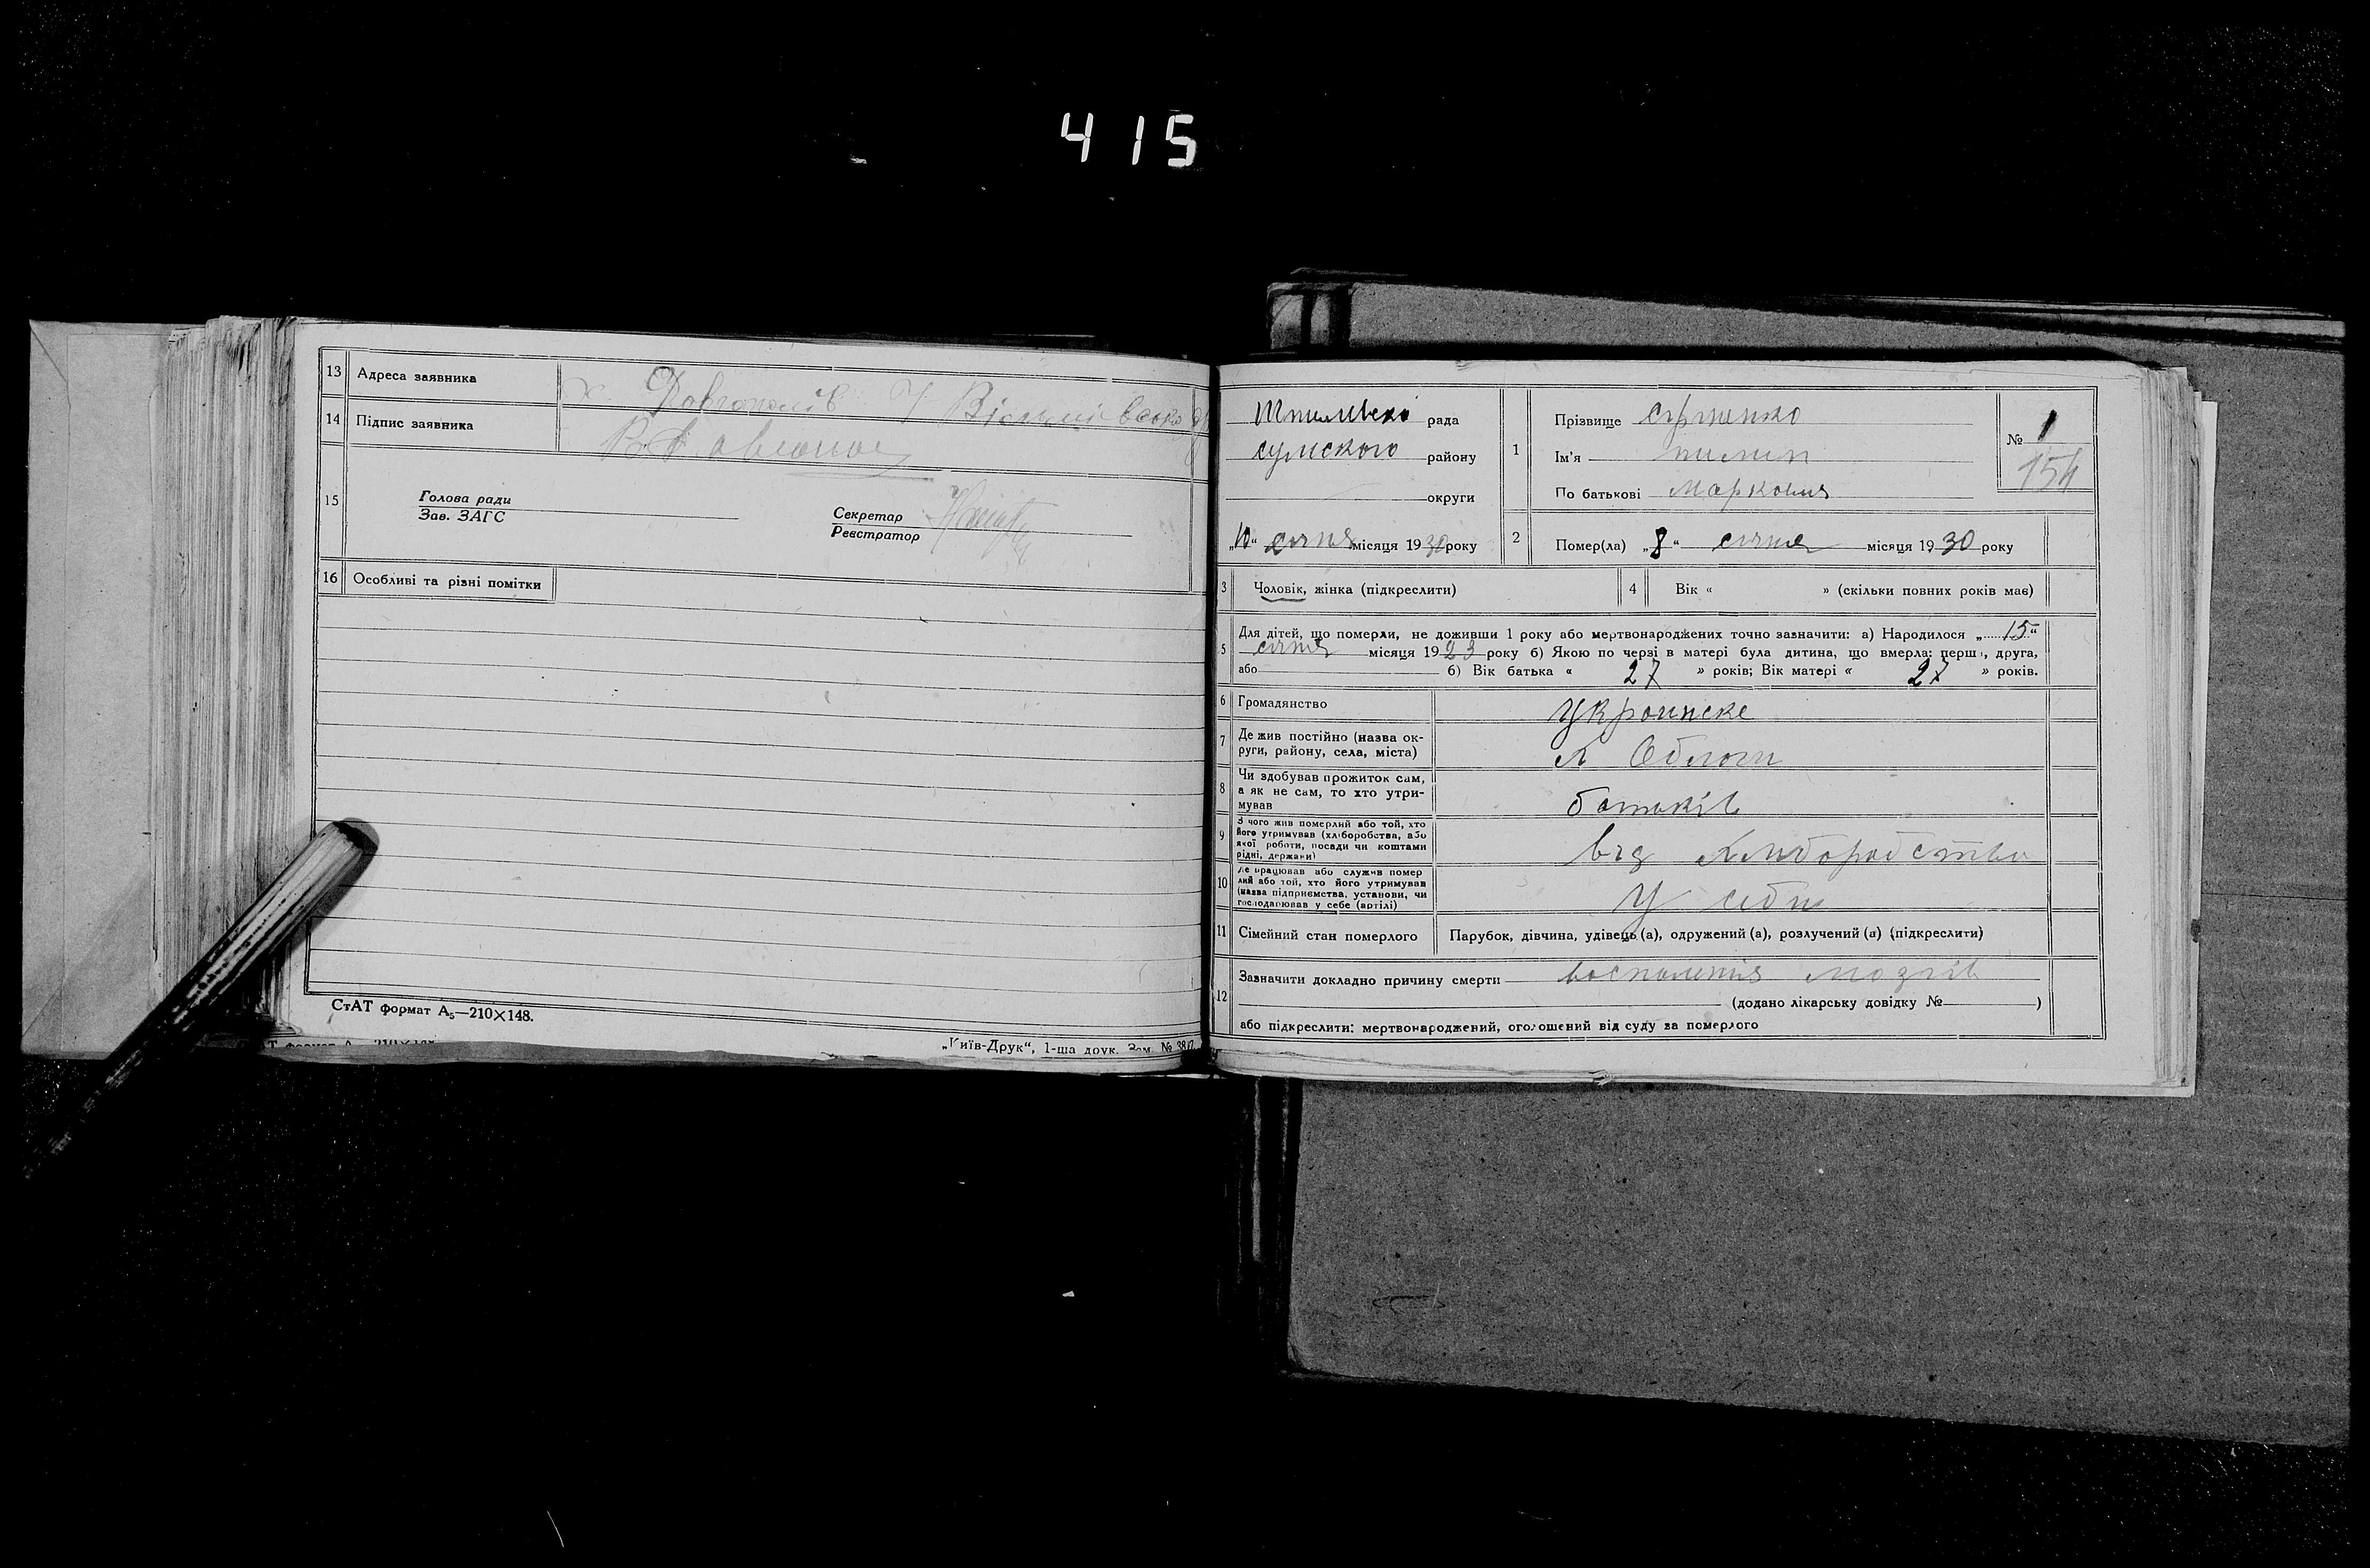 415
13 Адреса заявника х.
14 Підпис заявника
15 Голова ради
Зав. ЗАГС
Секретар
Реєстратор
16 Особливі та різні помітки
СтАТ формат А₅—210×148.
„Київ-Друк“, 1-ша друк. Зам. №
рада
сумского району
округи
„10“ січня місяця 1930 року
1 Прізвище
Ім'я пилип
По батькові Маркович
№ 1
154
2 Помер(ла) „8“ січня місяця 1930 року
3 Чоловік, жінка (підкреслити)
4 Вік « » (скільки повних років має)
5 Для дітей, що померли, не доживши 1 року або мертвонароджених точно зазначити: а) Народилося „15“
січня місяця 1923 року б) Якою по черзі в матері була дитина, що вмерла: перша, друга,
або б) Вік батька « 27 » років; Вік матері « 27 » років.
6 Громадянство Украинске
7 Де жив постійно (назва ок-
руги, району, села, міста)
8 Чи здобував прожиток сам,
а як не сам, то хто утри-
мував батьків
9 З чого жив померлий або той, хто
його утримував (хліборобства, або
якої роботи, посади чи коштами
рідні, держави) від хлиборобства
10 Де працював або служив помер
лий або той, хто його утримував
(назва підприємства, установи, чи
господарював у себе (артілі) У себи
11 Сімейний стан померлого Парубок, дівчина, удівець (а), одружений (а), розлучений (а) (підкреслити)
12 Зазначити докладно причину смерти воспаления мозгів
(додано лікарську довідку № )
або підкреслити: мертвонароджений, оголошений від суду за померлого